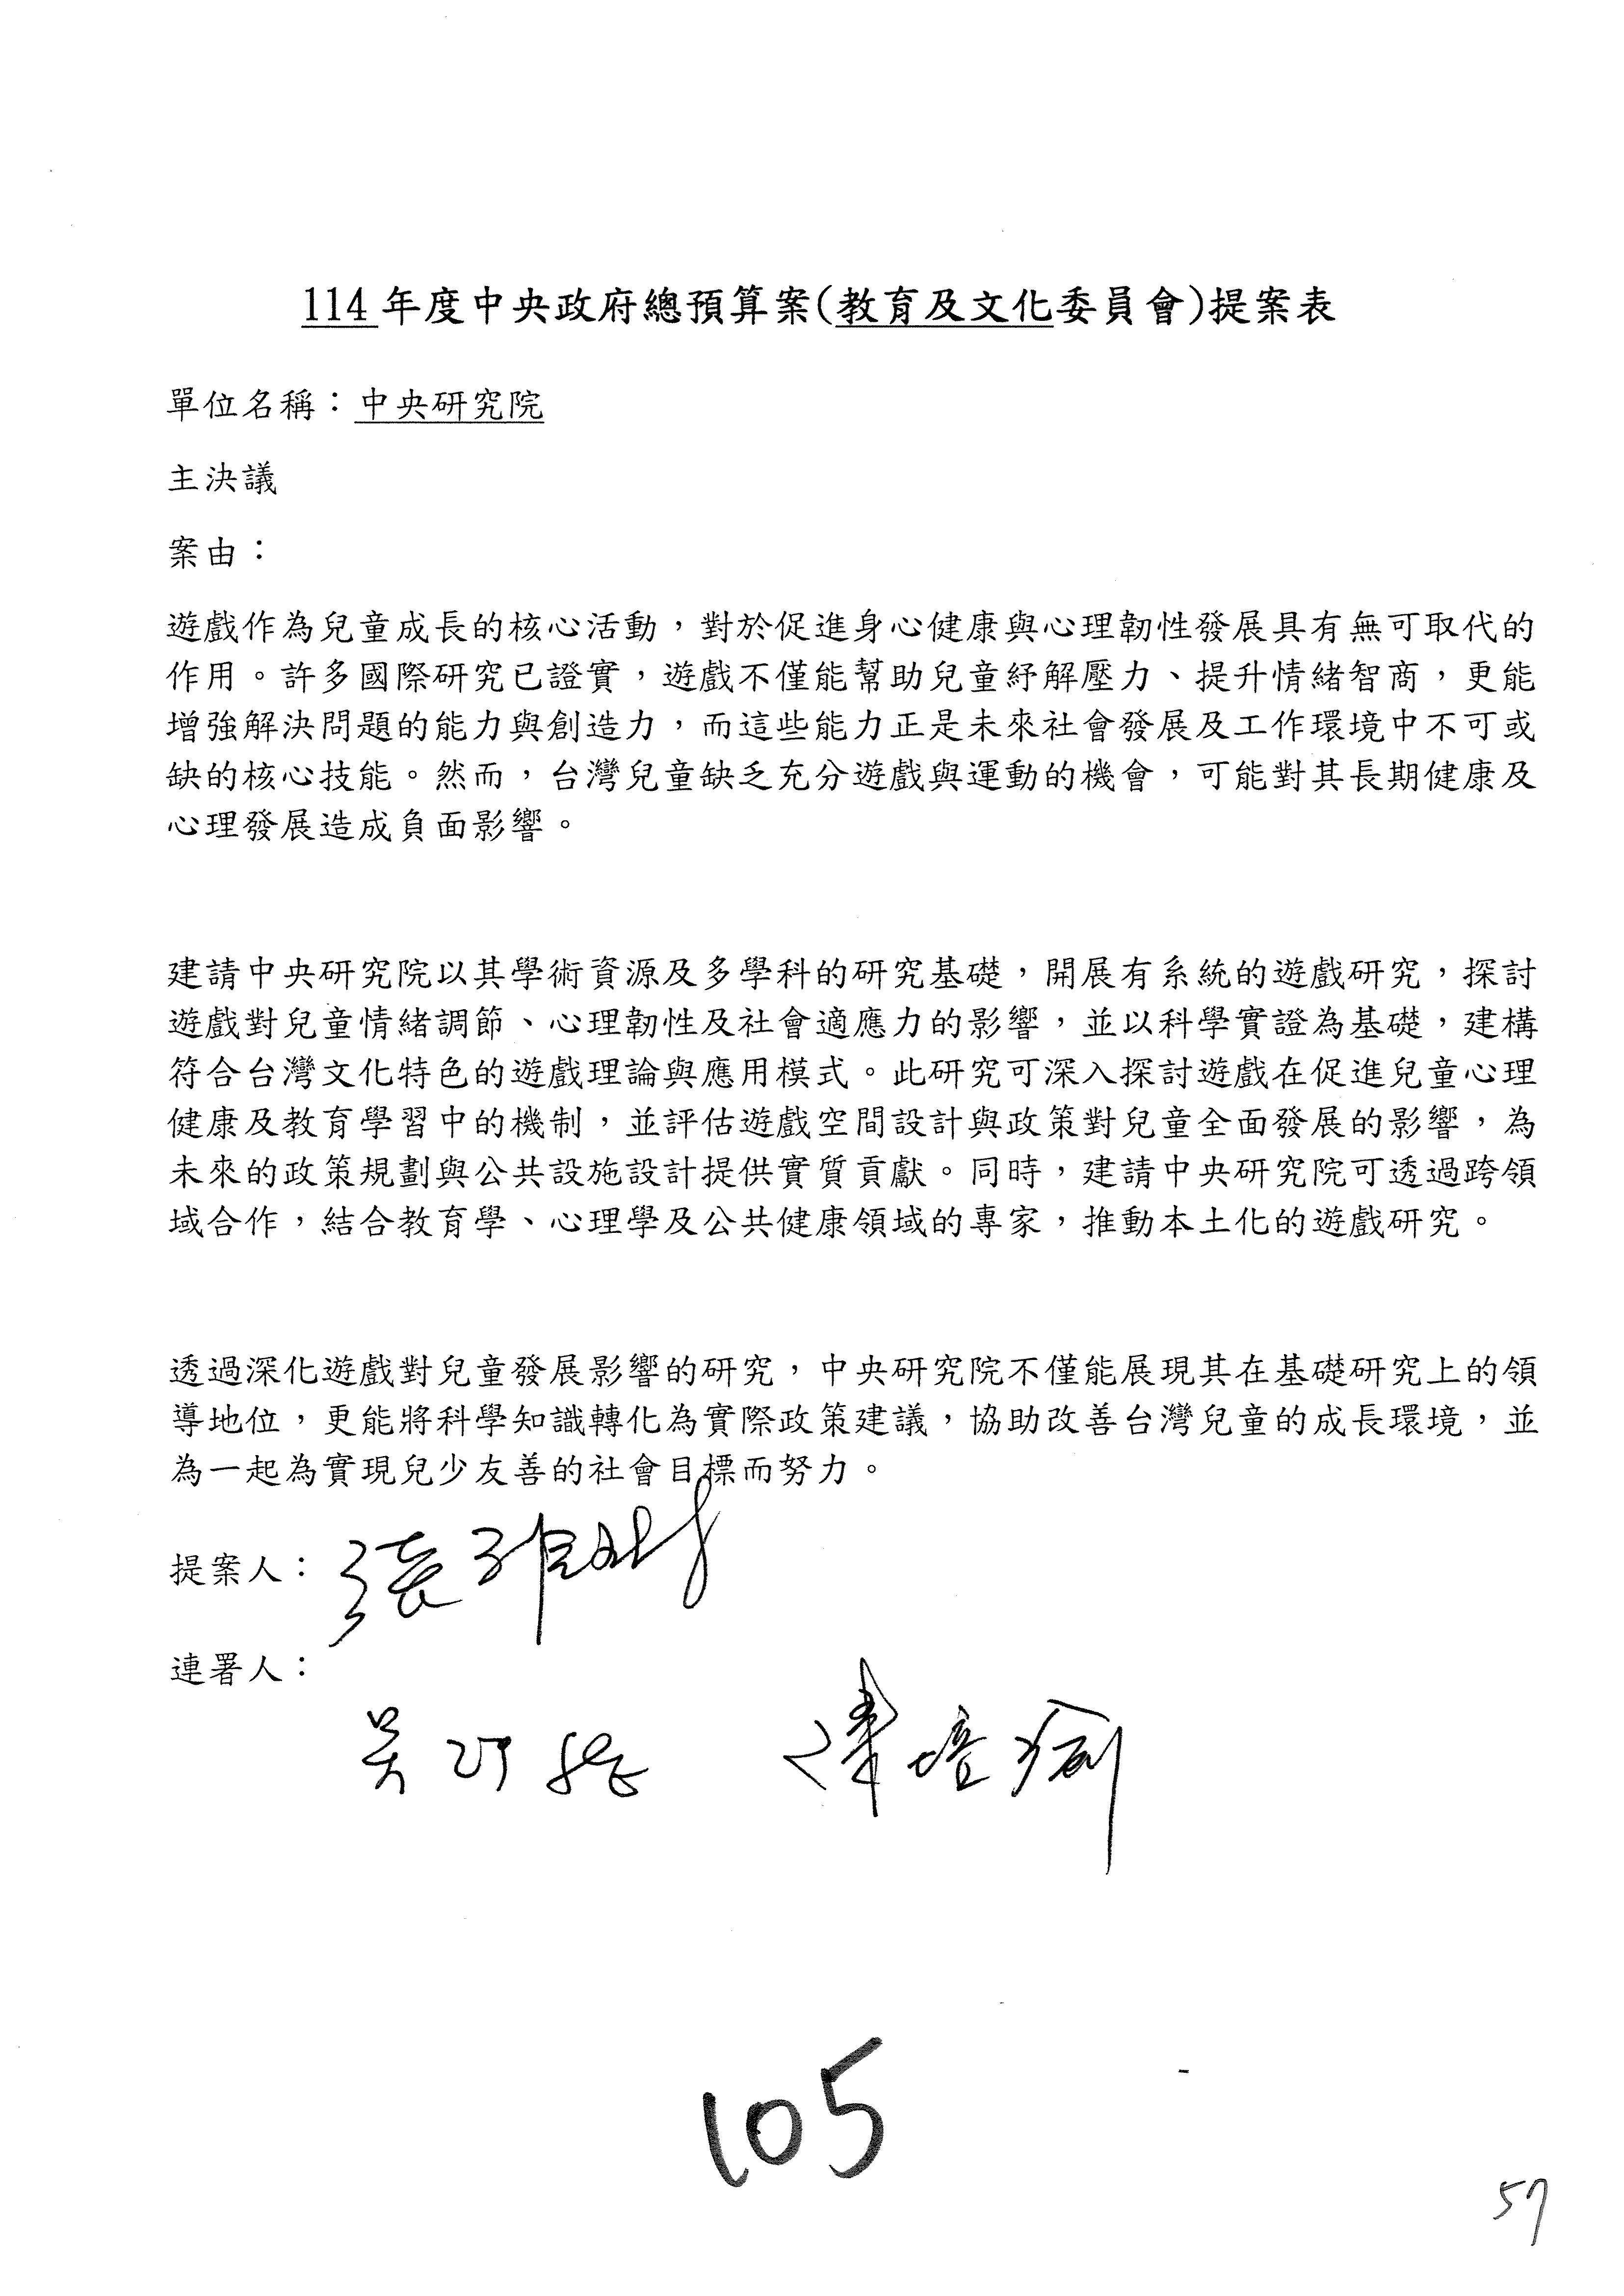 114 年度中央政府總預算案(教育及文化委員會)提案表
單位名稱：中央研究院
主決議
案由：
遊戲作為兒童成長的核心活動，對於促進身心健康與心理韌性發展具有無可取代的
作用。許多國際研究已證實，遊戲不僅能幫助兒童紓解壓力、提升情緒智商，更能
增強解決問題的能力與創造力，而這些能力正是未來社會發展及工作環境中不可或
缺的核心技能。然而，台灣兒童缺乏充分遊戲與運動的機會，可能對其長期健康及
心理發展造成負面影響。
建請中央研究院以其學術資源及多學科的研究基礎，開展有系統的遊戲研究，探討
遊戲對兒童情緒調節、心理韌性及社會適應力的影響，並以科學實證為基礎，建構
符合台灣文化特色的遊戲理論與應用模式。此研究可深入探討遊戲在促進兒童心理
健康及教育學習中的機制，並評估遊戲空間設計與政策對兒童全面發展的影響，為
未來的政策規劃與公共設施設計提供實質貢獻。同時，建請中央研究院可透過跨領
域合作，結合教育學、心理學及公共健康領域的專家，推動本土化的遊戲研究。
透過深化遊戲對兒童發展影響的研究，中央研究院不僅能展現其在基礎研究上的領
導地位，更能將科學知識轉化為實際政策建議，協助改善台灣兒童的成長環境，並
為一起為實現兒少友善的社會目標而努力。
提案人：張雅琳
連署人：
吳沛憶 陳培瑜
105
57